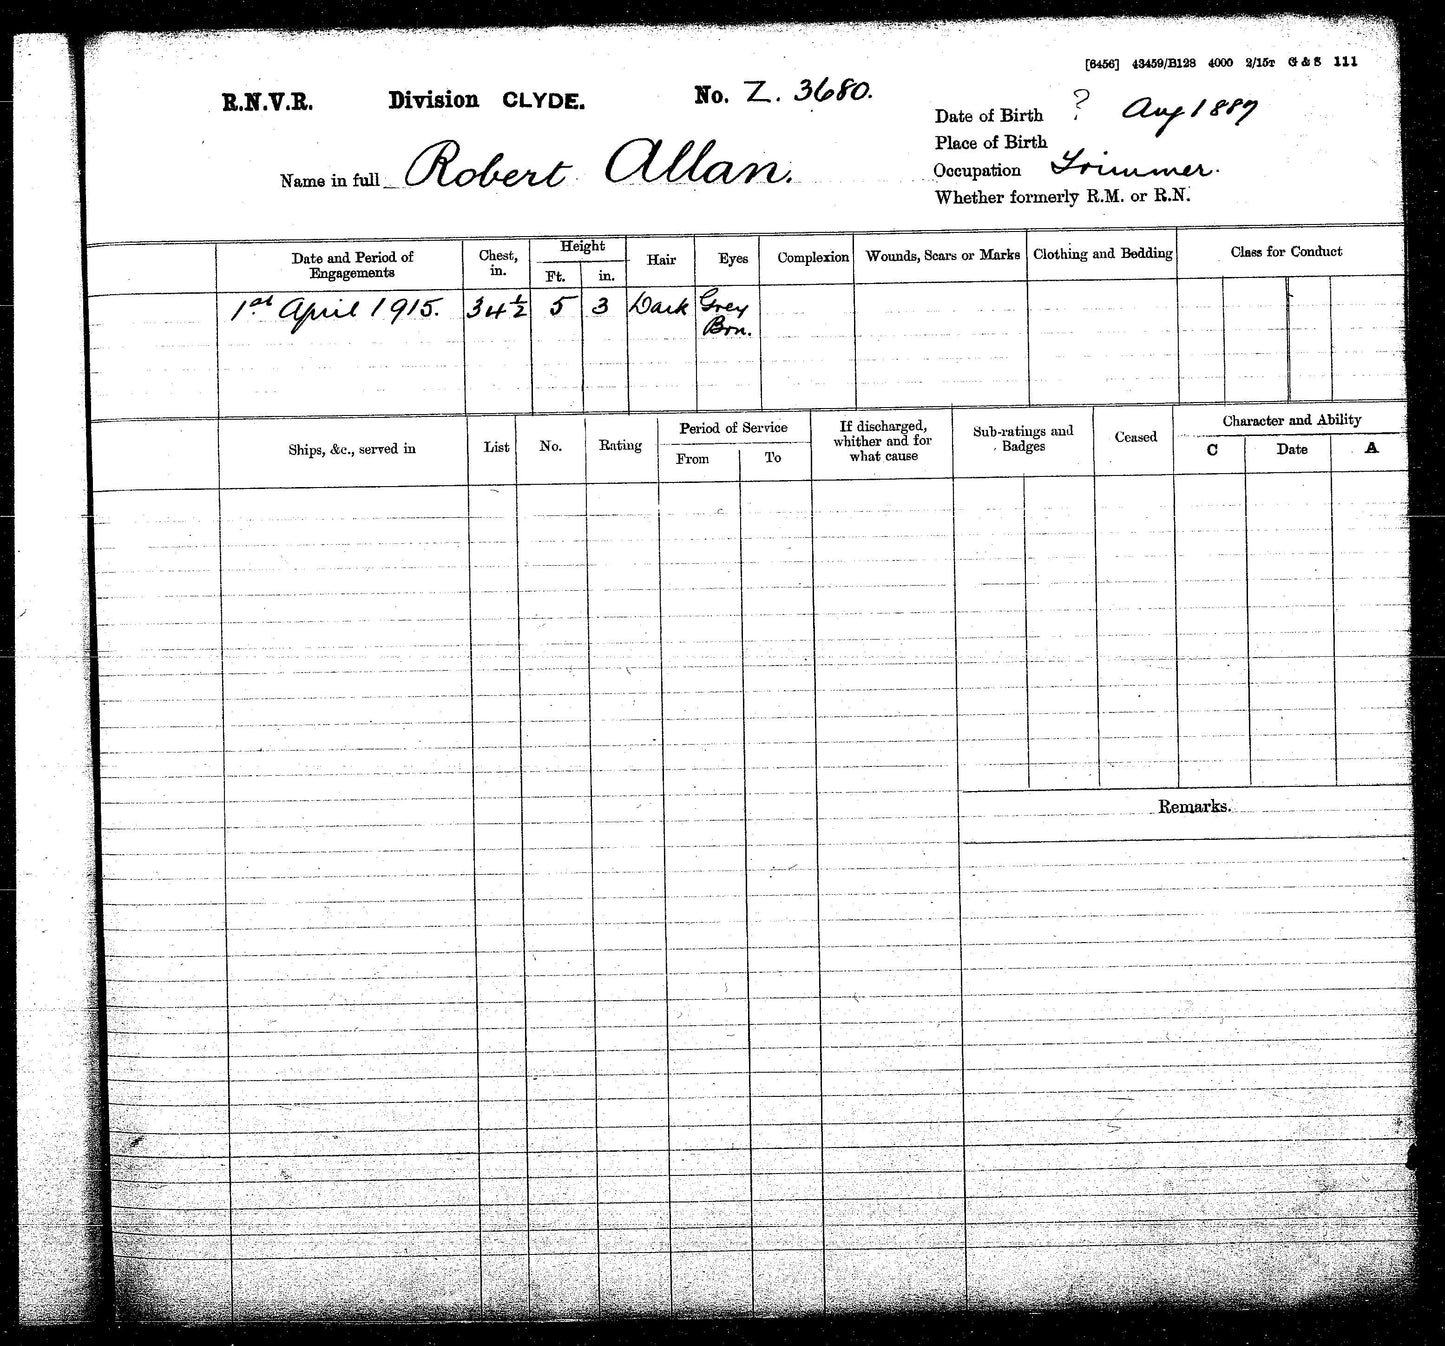 [6456] 43459/B128 4000 2/15T G & S 111
R.N.V.R. Division CLYDE. No. Z. 3680.
Date of Birth ? Aug 1887
Place of Birth
Name in full Robert Allan.
Occupation Trimmer.
Whether formerly R.M. or R.N.
Date and Period of Engagements Chest, in. Height Ft. in. Hair Eyes Complexion Wounds, Scars or Marks Clothing and Bedding Class for Conduct
1st April 1915. 34 1/2 5 3 Dark Grey
Brn.
Ships, &c., served in List No. Rating Period of Service From To If discharged, whither and for what cause Sub-ratings and Badges Ceased Character and Ability C Date A
Remarks.